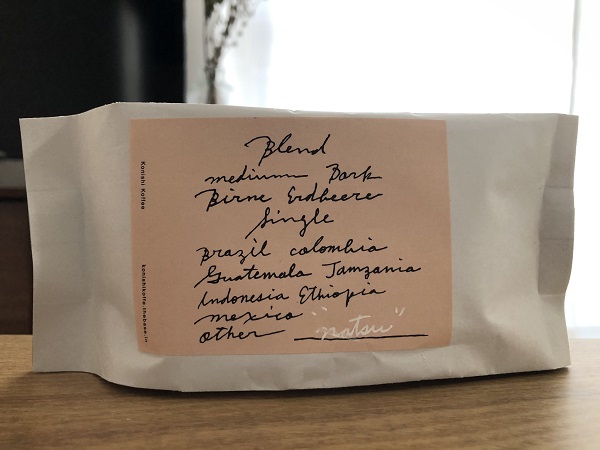 Blend
medium Dark
Birne Erdbeere
Single
Brazil colombia
Guatemala Tamzania
Indonesia Ethiopia
mexico
other "natsu"
Konishi Koffee
konishikoffe.thebase.in